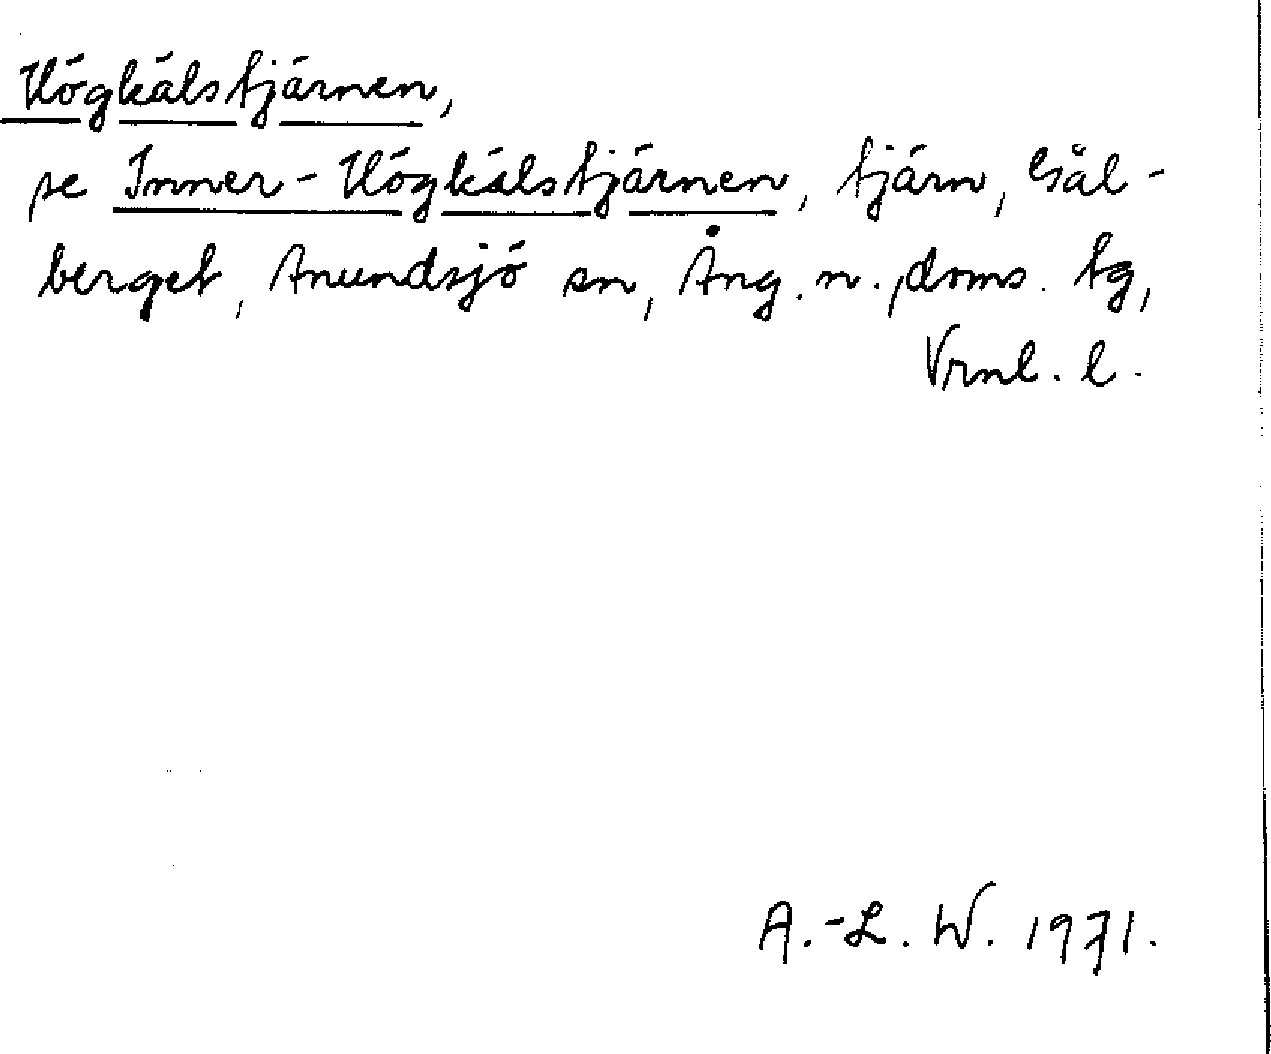 Högkälstjärnen,
se Inner-Högkälstjärnen, tjärn, Gål-
berget, Anundsjö sn, Ång. n. doms. tg,
Vrnl. l.
A.-L. W. 1971.